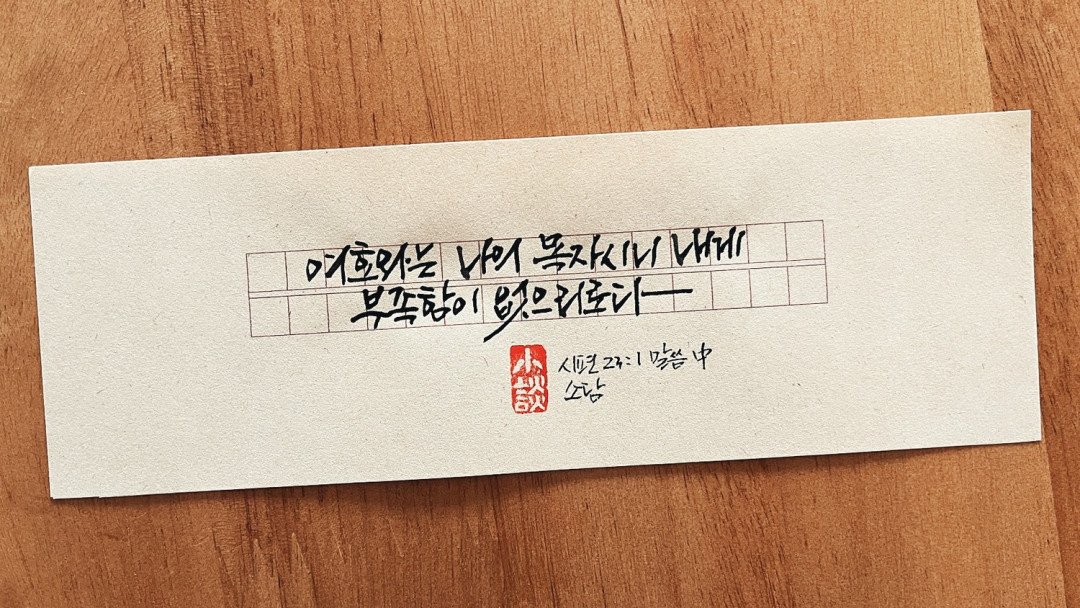 여호와는 나의 목자시니 내게
부족함이 없으리로다
시편 23:1 말씀 中
소담
小談